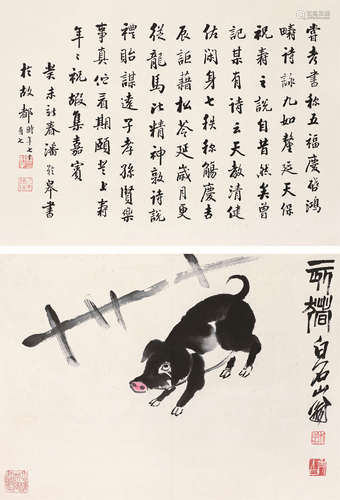 考書称五福慶鴻
疇詩詠九如釐延天保
祝壽之說自昔然矣曾
記某有詩云天教清健
佐閑身七秩稱觴慶吉
辰詎藉松苓延歲月更
從龍馬比精神敦詩說
禮貽謀遠子孝孫賢樂
事真佇看期頤登上壽
年年祝嘏集嘉賓
癸未社春潘齡皋書
於故都時年七十有七
白石山翁